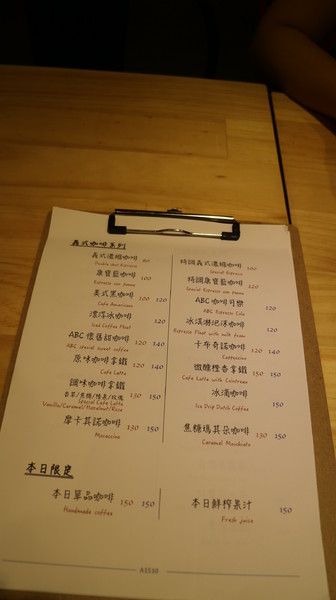 義式咖啡系列
義式濃縮咖啡 80
Double shot Espresso
康寶藍咖啡 100
Espresso con panna
美式黑咖啡 100 120
Cafe Americano
漂浮冰咖啡 120
Iced Coffee Float
ABC 懷舊甜咖啡 120 140
ABC special sweet coffee
原味咖啡拿鐵 120 140
Cafe Latte
調味咖啡拿鐵
香草/焦糖/榛果/玫瑰 130 150
Special Cafe Latte
Vanilla/Caramel/Hazelnut/Rose
摩卡其諾咖啡 130 150
Moccacino
特調義式濃縮咖啡 100
Special Espresso
特調康寶藍咖啡 120
Special Espresso con panna
ABC 咖啡可樂 120
ABC Espresso Cola
冰淇淋泡沫咖啡 120
Espresso Float with milk foam
卡布奇諾咖啡 120 140
Cappuccino
微醺橙香拿鐵 130 150
Cafe Latte with Cointreau
冰滴咖啡 150
Ice Drip Dutch Coffee
焦糖瑪其朵咖啡 130 150
Caramel Macchiato
本日限定
本日單品咖啡 150 150
Handmade coffee
本日鮮榨果汁 150
Fresh juice